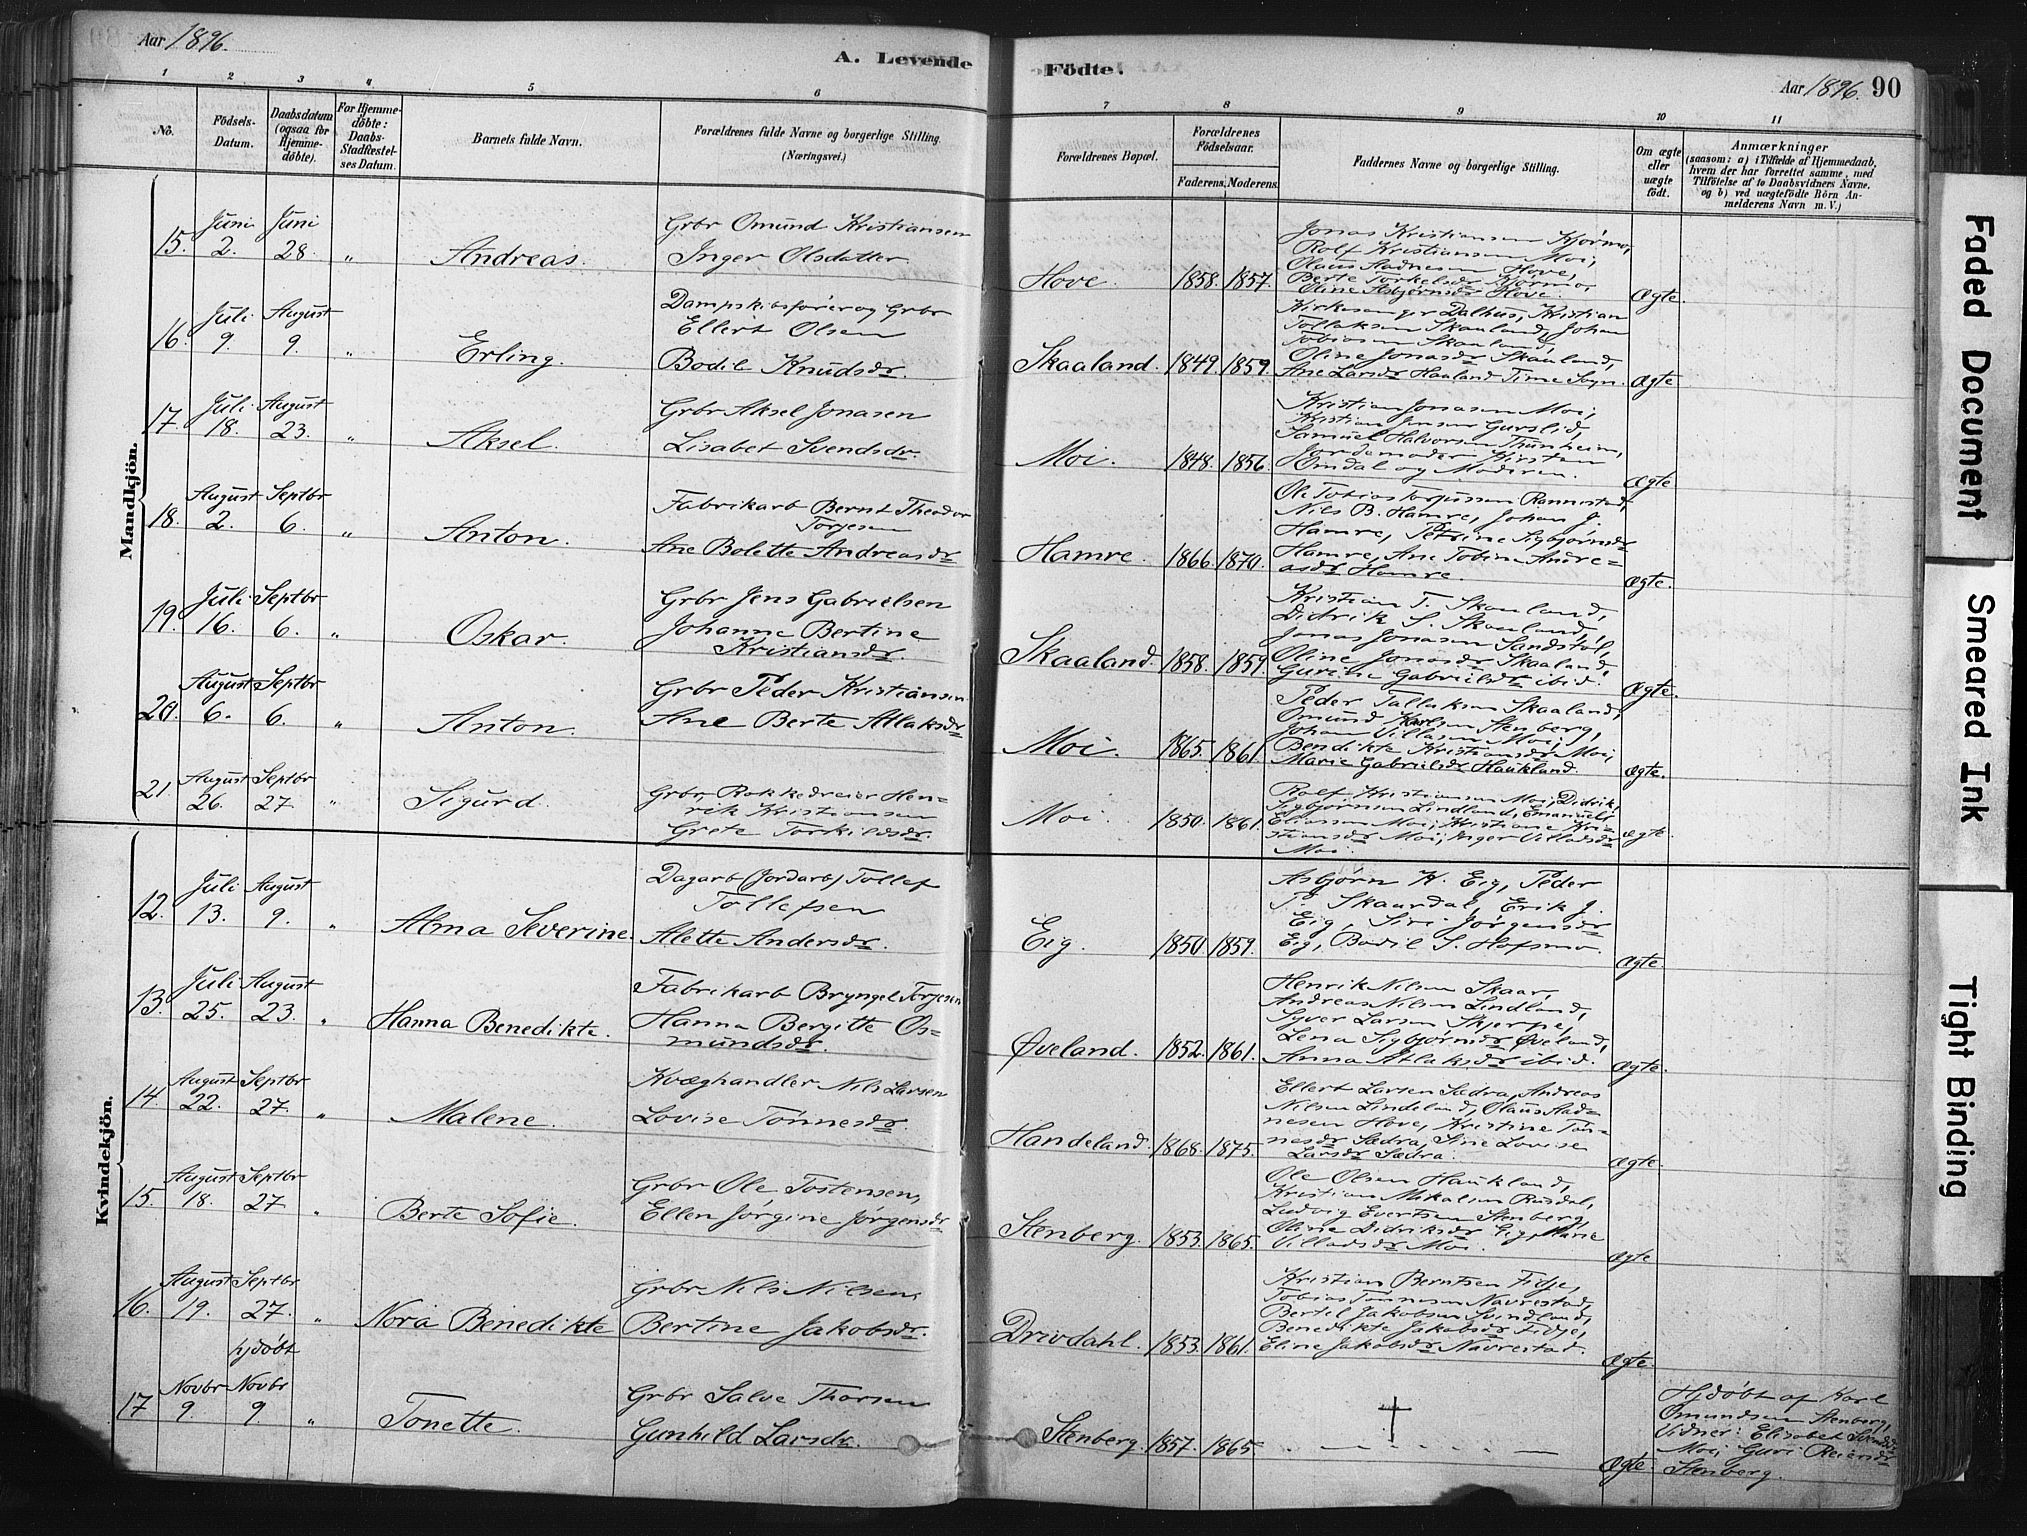 Aar 1896.
A. Levende Födte.
Aar 1896. 90
1 2 3 4 5 6 7 8 9 10 11
No.
Födsels-Datum.
Daabsdatum (ogsaa for Hjemme-döbte).
For Hjemme-döbte: Daabs-Stadfæstel-ses Datum.
Barnets fulde Navn.
Forældrenes fulde Navne og borgerlige Stilling. (Næringsvei.)
Forældrenes Bopæl.
Forældrenes Födselsaar.
Faderens. Moderens.
Faddernes Navne og borgerlige Stilling.
Om ægte eller uægte födt.
Anmærkninger
(saasom: a) i Tilfælde af Hjemmedaab,
hvem der har forrettet samme, med
Tilföielse af to Daabsvidners Navne.
og b) ved uægtefödte Börn An-
melderens Navn m. V.)
Mandkjön.
15. Juni 2. Juni 28. „ Andreas.
Grbr Omund Kristiansen
Inger Olsdatter
Hove. 1858. 1857.
Jonas Kristiansen Kjørmo,
Rolf Kristiansen Moi,
Olaus Stadnesen Hove,
Berte Torkelsdr Kjørmo,
Oline Asbjørnsdr Hove.
Ægte.
16. Juli 9. August 9. „ Erling.
Dampskibsfører og Grbr
Ellert Olsen
Bodil Knudsdr.
Skaaland. 1849. 1859.
Kirkesanger Dalhus, Kristian
Tollaksen Skaaland, Johan
Tobiasen Skaaland,
Oline Jonasdr Skaaland,
Ane Larsdr Haaland Time Sogn.
Ægte
17. Juli 18. August 23. „ Aksel.
Grbr Aksel Jonasen
Lisabet Svendsdr.
Moi. 1848. 1856.
Kristian Jonasen Moi,
Kristian Jensen Gurslid,
Samuel Halvorsen Thunheim,
Jordemoder Kirsten
Omdal og Moderen.
Ægte
18. August 2. Septbr 6. „ Anton.
Fabrikarb Bernt Theodor
Torjesen
Ane Bolette Andreasdr
Hamre. 1866. 1870.
Ole Tobias Torjussen Rannestad,
Nils B. Hamre, Johan J.
Hamre, Petrine Sigbjørnsdr
Hamre, Ane Tobine Andre=
asdr Hamre.
Ægte.
19. Juli 16. Septbr 6. „ Oskar.
Grbr Jens Gabrielsen
Johanne Bertine
Kristiansdr.
Skaaland. 1858. 1859.
Kristian T. Skaaland,
Didrik S. Skaaland,
Jonas Jonasen Sandstøl,
Oline Jonasdr Skaaland,
Gurine Gabrielsdr ibid.
Ægte.
20. August 6. Septbr 6. „ Anton.
Grbr Peder Kristiansen
Ane Berte Atlaksdr
Moi. 1865. 1861.
Peder Tallaksen Skaaland,
Omund Karlsen Stenberg,
Johan Villasen Moi,
Bendikte Kristiansdr Moi,
Marie Gabrielsdr Haukland.
Ægte.
21 August 26. Septbr 27 „ Sigurd.
Grbr, Rokkedreier Hen-
rik Kristiansen
Grete Torkildsdr.
Moi. 1850. 1861.
Rolf Kristiansen Moi, Didrik
Sigbjørnsen Lindland, Emanuel
Eliassen Moi, Kristiane Kri-
stiansdr Moi, Inger Villadsdr
Moi.
Ægte
Kvindekjön.
12. Juli 13. August 9. „ Alma Severine.
Dagarb (Jordarb) Tollef
Tollefsen
Alette Andersdr.
Eig. 1850. 1859.
Asbjørn K. Eig, Peder
P. Skaardal, Erik J.
Eig, Siri Jørgensdr
Eig, Bodil S. Hofsmo.
Ægte.
13. Juli 25. August 23. „ Hanna Benedikte.
Fabrikarb Bryngel Torjesen
Hanna Bergitte Os-
mundsdr.
Øveland. 1852. 1861.
Henrik Nilsen Skaar,
Andreas Nilsen Lindland,
Syver Larsen Skjerpe,
Lena Sigbjørnsdr Øveland,
Anna Atlaksdr ibid.
Ægte.
14. August 22. Septbr 27. „ Malene.
Kvæghandler Nils Larsen
Lovise Tønnesdr.
Handeland. 1868. 1875.
Ellert Larsen Sædra, Andreas
Nilsen Lindeland, Olaus Stad=
nesen Hove, Kristine Tøn-
nesdr Sædra, Sine Lovise
Larsdr Sædra.
Ægte.
15. August 18. Septbr 27 „ Berte Sofie.
Grbr Ole Tostensen,
Ellen Jørgine Jørgensdr
Stenberg. 1853. 1865.
Ole Olsen Haukland,
Kristian Mikalsen Rusdal,
Ludvig Evertsen Stenberg,
Oline Didriksdr Eig, Marie
Villadsdr Moi.
Ægte
16. August 19. Septbr 27. „ Nora Benedikte
Grbr Nils Nilsen,
Bertine Jakobsdr.
Drivdahl. 1853. 1861.
Kristian Berntsen Fidje,
Tobias Tønnesen Navrestad,
Bertel Jakobsen Svindland,
Benedikte Jakobsdr Fidje,
Eline Jakobsdr Navrestad.
Ægte.
17 Novbr 9. hjdøbt Novbr 9 „ Tonette.
Grbr Salve Thorsen
Gunhild Larsdr.
Stenberg. 1857. 1865.
Ægte.
Hjdøbt af Karl
Omundsen Stenberg,
Vidner: Elisabet Svendsdr
Moi, Guri Reiersdr
Stenberg.
Faded Document
Smeared Ink
Tight Binding